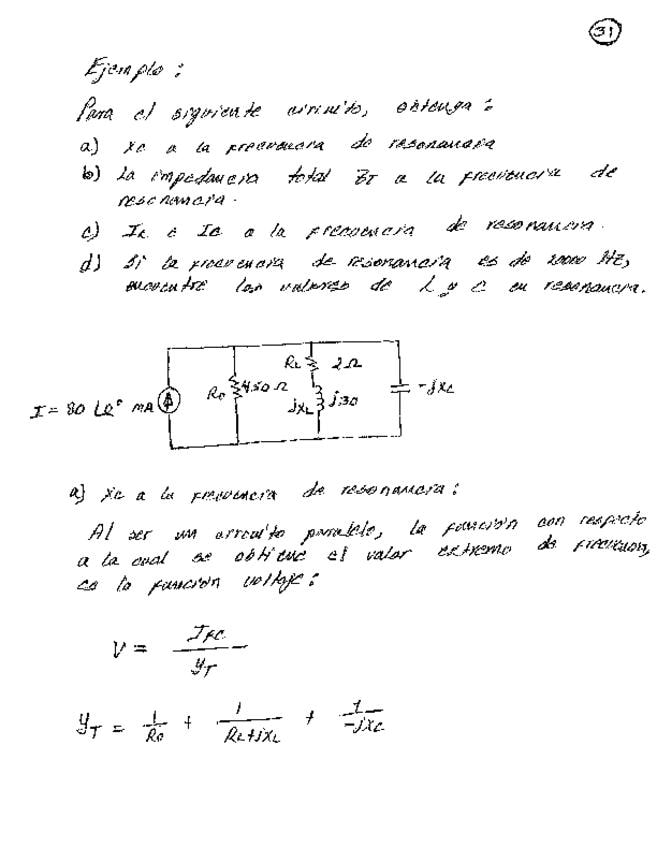 31
Ejemplo:
Para el siguiente circuito, obtenga:
a) Xc a la frecuencia de resonancia
b) La impedancia total ZT a la frecuencia de
resonancia.
c) IL e IC a la frecuencia de resonancia.
d) Si la frecuencia de resonancia es de 20000 HZ,
encuentre los valores de L y C en resonancia.
RL 2Ω
I = 80 ∠0° mA Ro 450 Ω jXL j30 -jXc
a) Xc a la frecuencia de resonancia:
Al ser un circuito paralelo, la función con respecto
a la cual se obtiene el valor extremo de frecuencia,
es la función voltaje:
V = IFC / YT
YT = 1/Ro + 1/RL+jXL + 1/-jXc